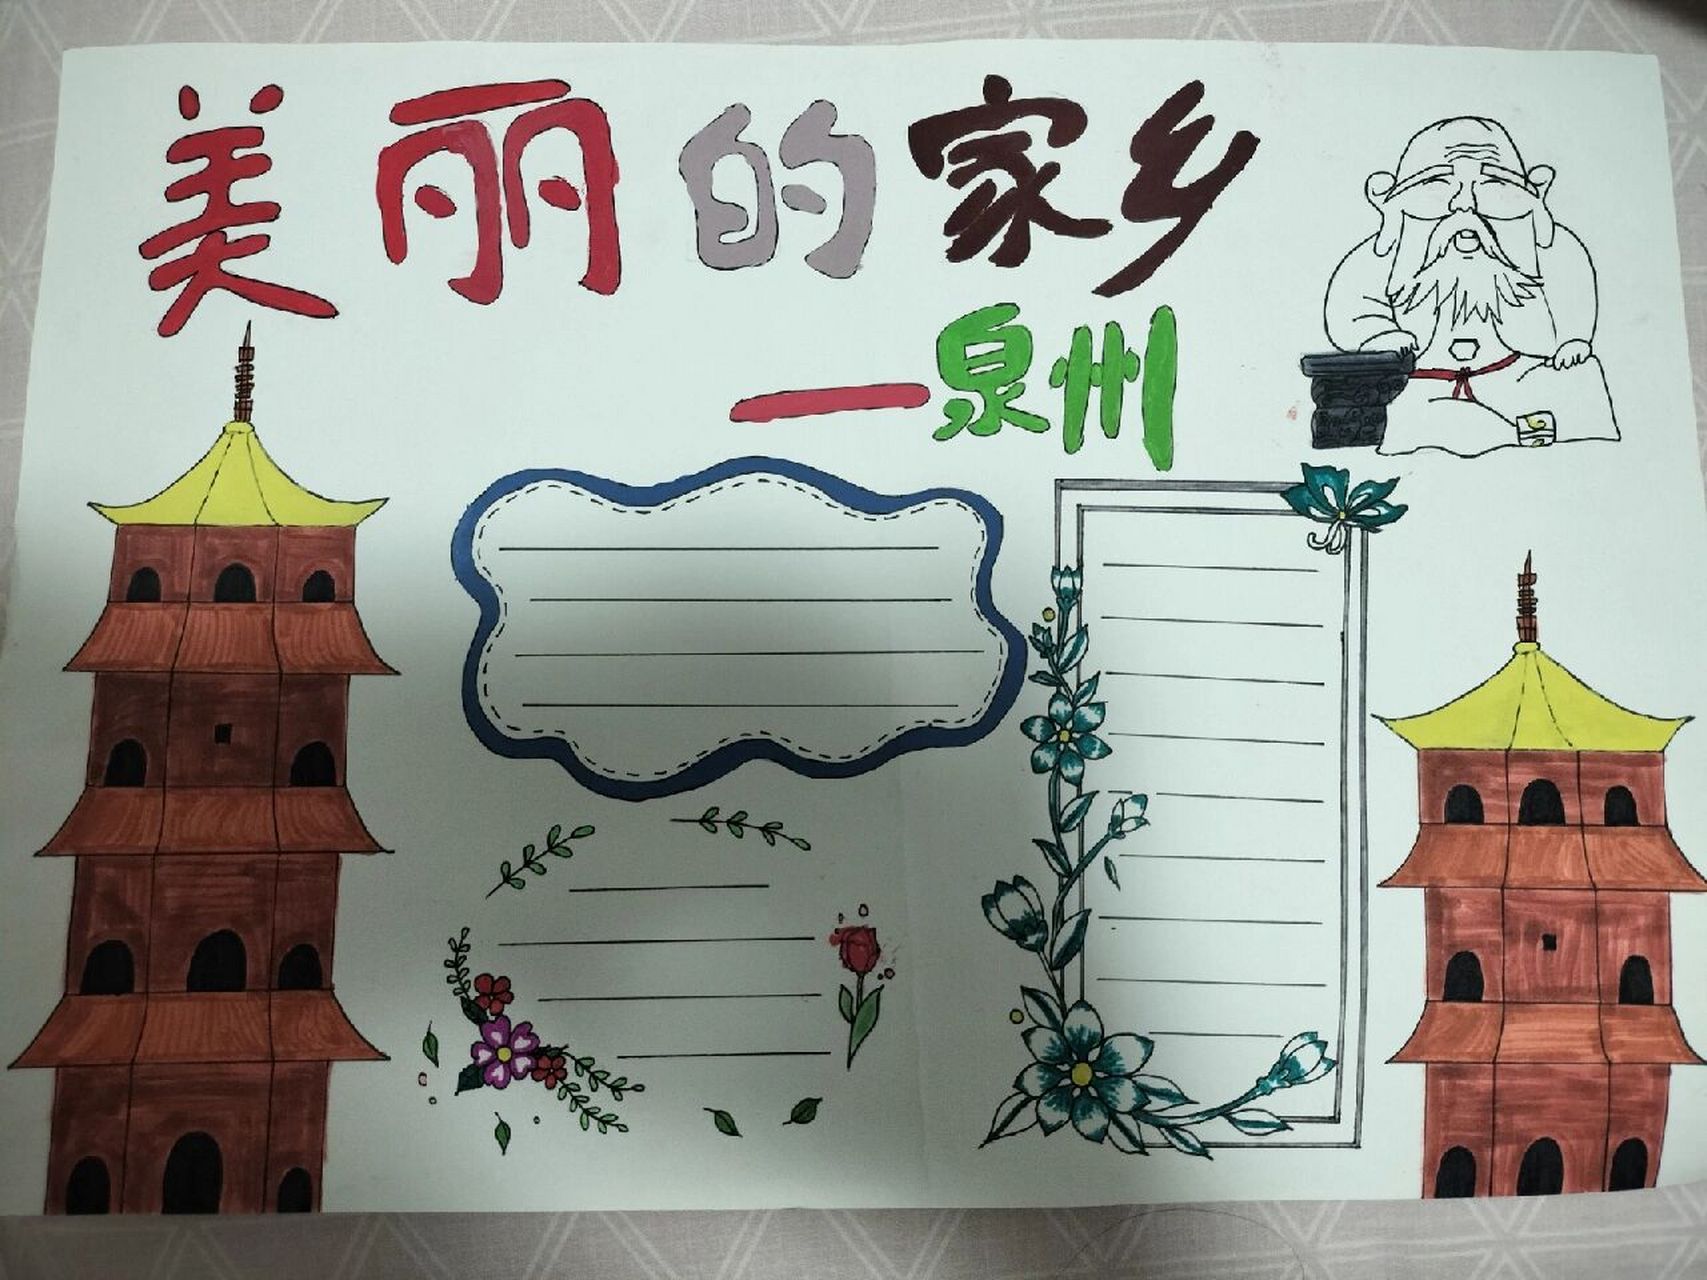 美丽的家乡
—泉州